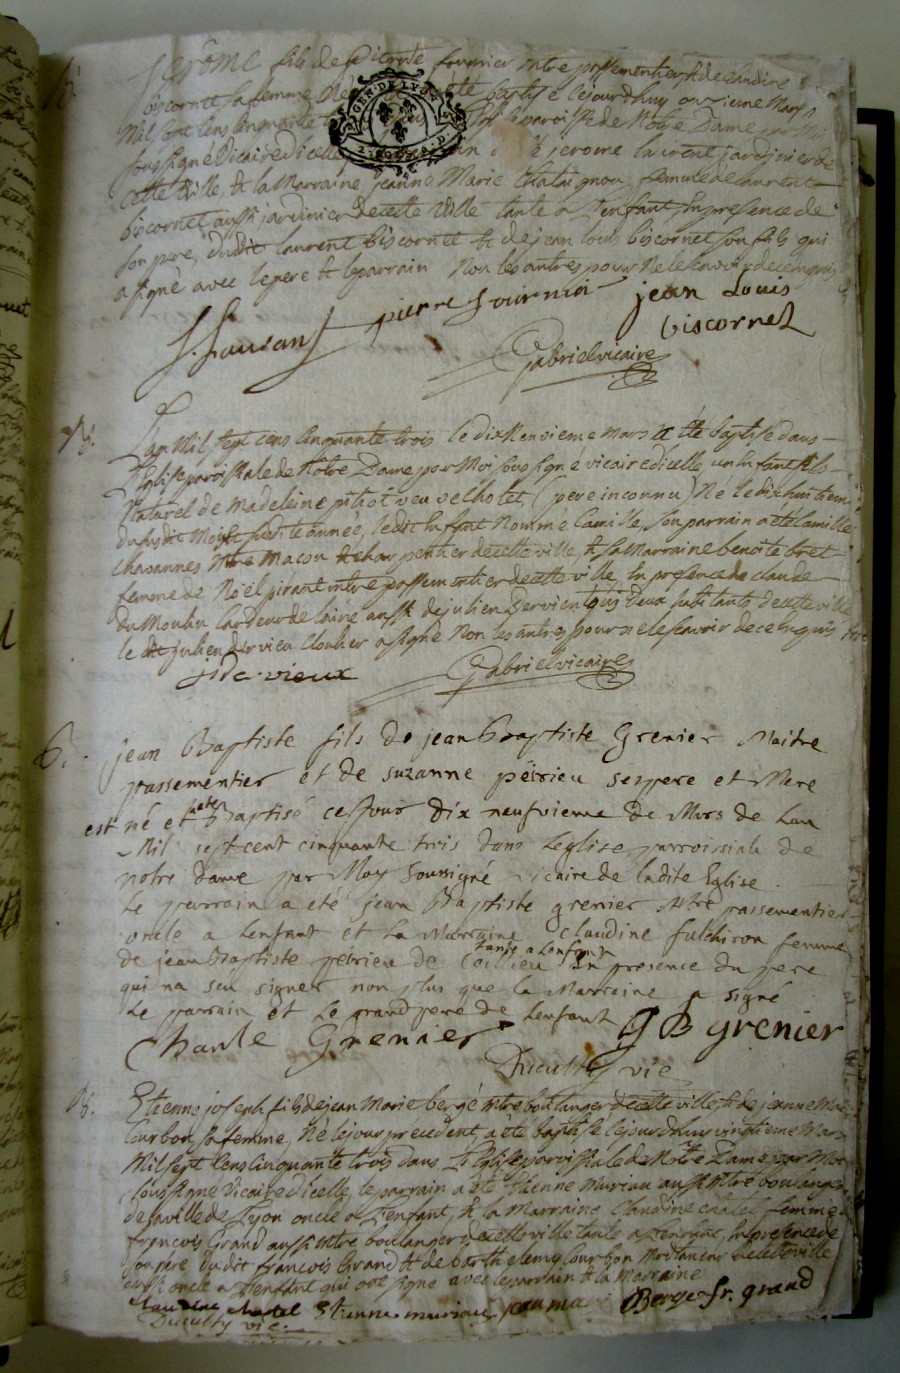 B.
jerôme fils de Pierre fournier mtre passementier & de claudine
biscornet sa femme Né été baptisé cejourdhuy onzieme Mars
Mil sept cens cinquante paroisse de Notre Dame par Moi
soussigné Vicaire dicelle jerome laurent jardinier de
cette Ville, & la Marraine jeanne Marie Chataignon femme de laurent
biscornet aussi jardinier de cette Ville tante a l'enfant En presence de
son pere, dudit laurent biscornet & de jean louis biscornet son fils qui
a signé avec le pere & le parrain Non les autres pour Ne le scavoir de ce enquis
GEN. DE LYON
J. Laurans pierre fournier jean Louis
biscornet
Gabriel vicaire
B.
L'an Mil sept cens cinquante trois le dix Neuvieme Mars a été baptisé dans
L'Eglise paroissiale de Notre Dame par Moi soussigné vicaire dicelle un Enfant fils
Naturel de Madeleine pitiot veuve lhostet, (pere inconnu) Né le dix huitieme
du susdit Mois susdite année, ledit Enfant Nommé Camille, son parrain a été Camille
Chavannes Mtre Macon & charpentier de cette ville, & sa Marraine benoite bret
femme de Noël pirant mtre passementier de cette ville En presence de claude
Du Moulin Cardeur de laine aussi de julien Dervieu tous deux habitants de cette ville
le dit julien dervieu Cloutier a signé Non les autres pour ne le scavoir de ce enquis
j. de. vieux Gabriel vicaire
B. jean Baptiste fils de jean Baptiste Grenier Maitre
passementier et de suzanne pétrieu ses pere et Mere
est né et a été Baptisé ce Jour dix neufvieme de Mars de Lan
Mil sept cent cinquante trois dans Leglise parroissiale de
notre dame par Moy soussigné vicaire de ladite Eglise.
Le parrain a été jean Baptiste grenier Mtre passementier
oncle a lenfant et La Marraine Claudine fulchiron femme
de jean Baptiste pétrieu de tante a lenfant En presence du pere
qui na seu signer non plus que la Marraine a signé
Le parrain et Le grand pere de Lenfant GB grenier
Charle Grenier
Ducultty vic
B.
Etienne joseph fils de jean Marie bergé mtre boulanger de cette ville, & de jeanne Marie
Courbon sa femme, Né le jour precedent, a été baptisé cejourdhuy vingtieme Mars
Mil sept Cens cinquante trois dans L'Eglise paroissiale de Notre Dame par Moi
soussigné Vicaire dicelle, le parrain a été Etienne Muriau aussi Mtre boulanger
de la ville de Lyon oncle a l'enfant, & la Marraine Claudine chatel femme de
francois Grand aussi mtre boulanger de cette ville tante a l'enfant, En presence de
son pere du dit francois Grand & de barthelemy Courbon de cette ville
aussi oncle a l'enfant qui ont signé avec le parrain & la Marraine
Claudine chatel Etienne muriau jean ma Berge fr. grand
Ducultty vic.